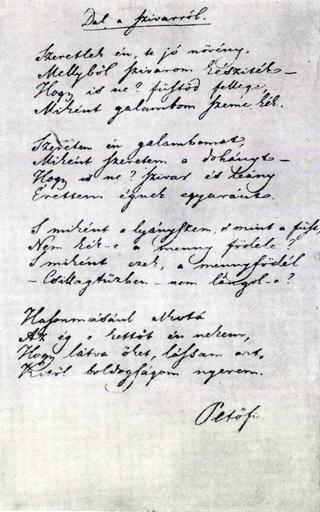 Dal a szivarról.
Szeretlek én, te jó növény,
Mellyből szivarom készíték –
Hogy is ne? füstöd fellege,
Miként galambom szeme kék.
Szeretem én galambomat,
Miként szeretem a dohányt –
Hogy is ne? szivar és leány
Érettem égnek egyaránt.
S miként a lyányszem, s mint a füst,
Nem kék-e a menny födele?
S miként ezek, a mennyfödél
– Csillagtűzben – nem lángol-e?
Hasonmásául alkotá
Az ég e kettőt én nekem,
Hogy látva őket, lássam azt,
Kitől boldogságom nyerem.
Petőfi